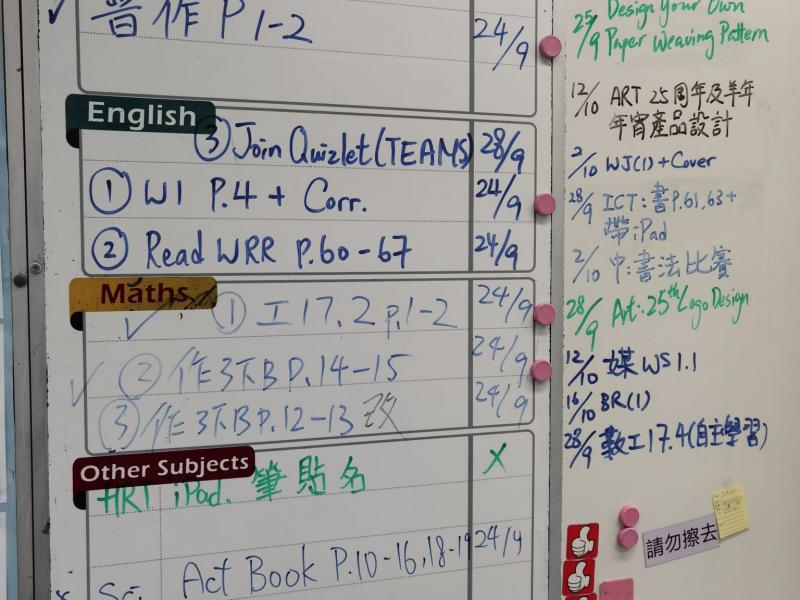 普作 P1-2 24/9
English
③ Join Quizlet (TEAMS) 28/9
① W1 P.4 + Corr. 24/9
② Read WRR P.60-67 24/9
Maths
① 工17.2 p.1-2 24/9
② 作3下B P.14-15 24/9
③ 作3下B P.12-13 改 24/9
Other Subjects
ART iPad. 筆貼名 X
Sc. Act Book P.10-16, 18-19 24/9
25/9 Design Your Own
Paper Weaving Pattern
12/10 ART 25周年及羊年
年宵產品設計
2/10 WJ(1)+Cover
28/9 ICT:書P.61,63+
帶iPad
2/10 中:書法比賽
28/9 Art:25th Logo Design
12/10 媒 WS 1.1
16/10 BR(1)
28/9 數工17.4(自主學習)
請勿擦去